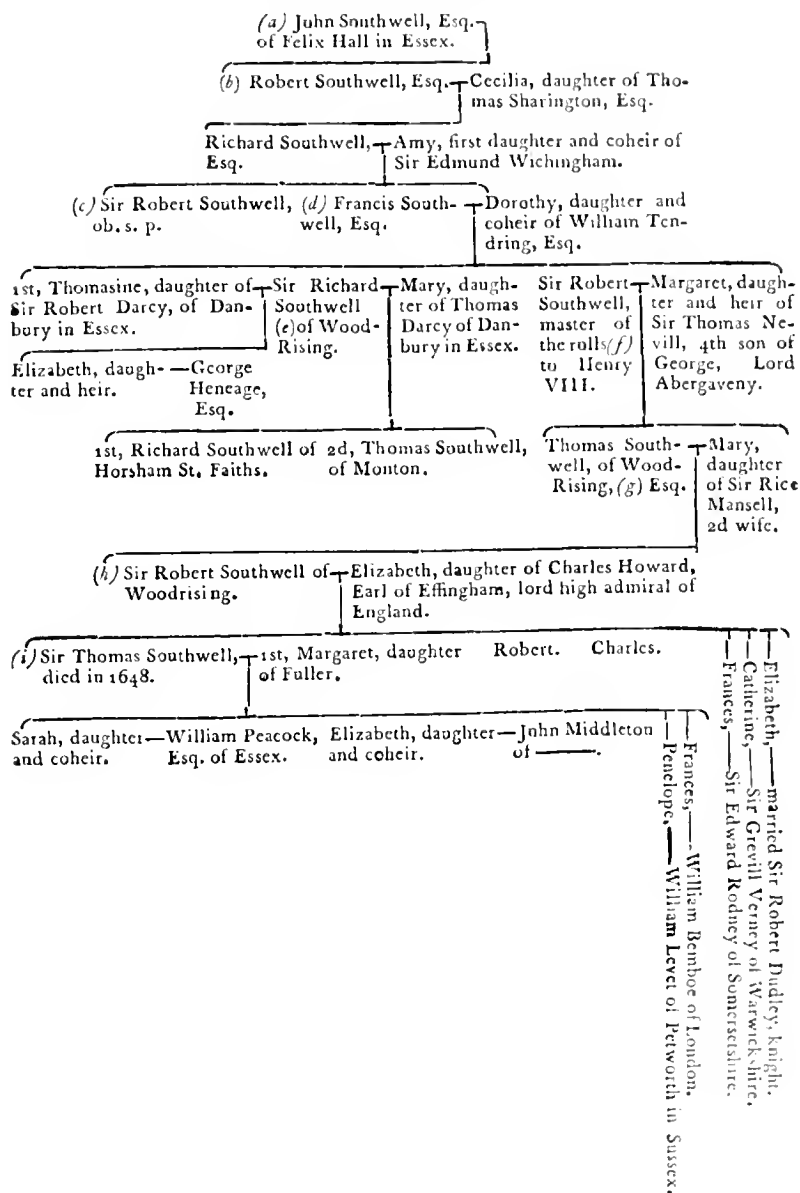 (a) John Southwell, Esq.
of Felix Hall in Essex.
(b) Robert Southwell, Esq. Cecilia, daughter of Tho-
mas Sharington, Esq.
Richard Southwell, Amy, first daughter and coheir of
Esq. Sir Edmund Wichingham.
(c) Sir Robert Southwell,
ob. s. p.
(d) Francis South-
well, Esq.
Dorothy, daughter and
coheir of William Ten-
dring, Esq.
1st, Thomasine, daughter of
Sir Robert Darcy, of Dan-
bury in Essex.
Sir Richard
Southwell
(e) of Wood-
Rising.
Mary, daugh-
ter of Thomas
Darcy of Dan-
bury in Essex.
Sir Robert
Southwell,
master of
the rolls (f)
to Henry
VIII.
Margaret, daugh-
ter and heir of
Sir Thomas Ne-
vill, 4th son of
George, Lord
Abergaveny.
Elizabeth, daugh-
ter and heir.
George
Heneage,
Esq.
1st, Richard Southwell of
Horsham St. Faiths.
2d, Thomas Southwell,
of Monton.
Thomas South-
well, of Wood-
Rising, (g) Esq.
Mary,
daughter
of Sir Rice
Mansell,
2d wife.
(h) Sir Robert Southwell of
Woodrising.
Elizabeth, daughter of Charles Howard,
Earl of Effingham, lord high admiral of
England.
(i) Sir Thomas Southwell,
died in 1648.
1st, Margaret, daughter
of Fuller.
Robert. Charles.
Elizabeth,—married Sir Robert Dudley, knight.
Catherine,—Sir Grevill Verney of Warwickshire.
Frances,—Sir Edward Rodney of Somersetshire.
Sarah, daughter—William Peacock,
and coheir. Esq. of Essex.
Elizabeth, daughter—John Middleton
and coheir. of ———.
Frances,—William Bemboe of London.
Penelope,—William Levet of Petworth in Sussex.